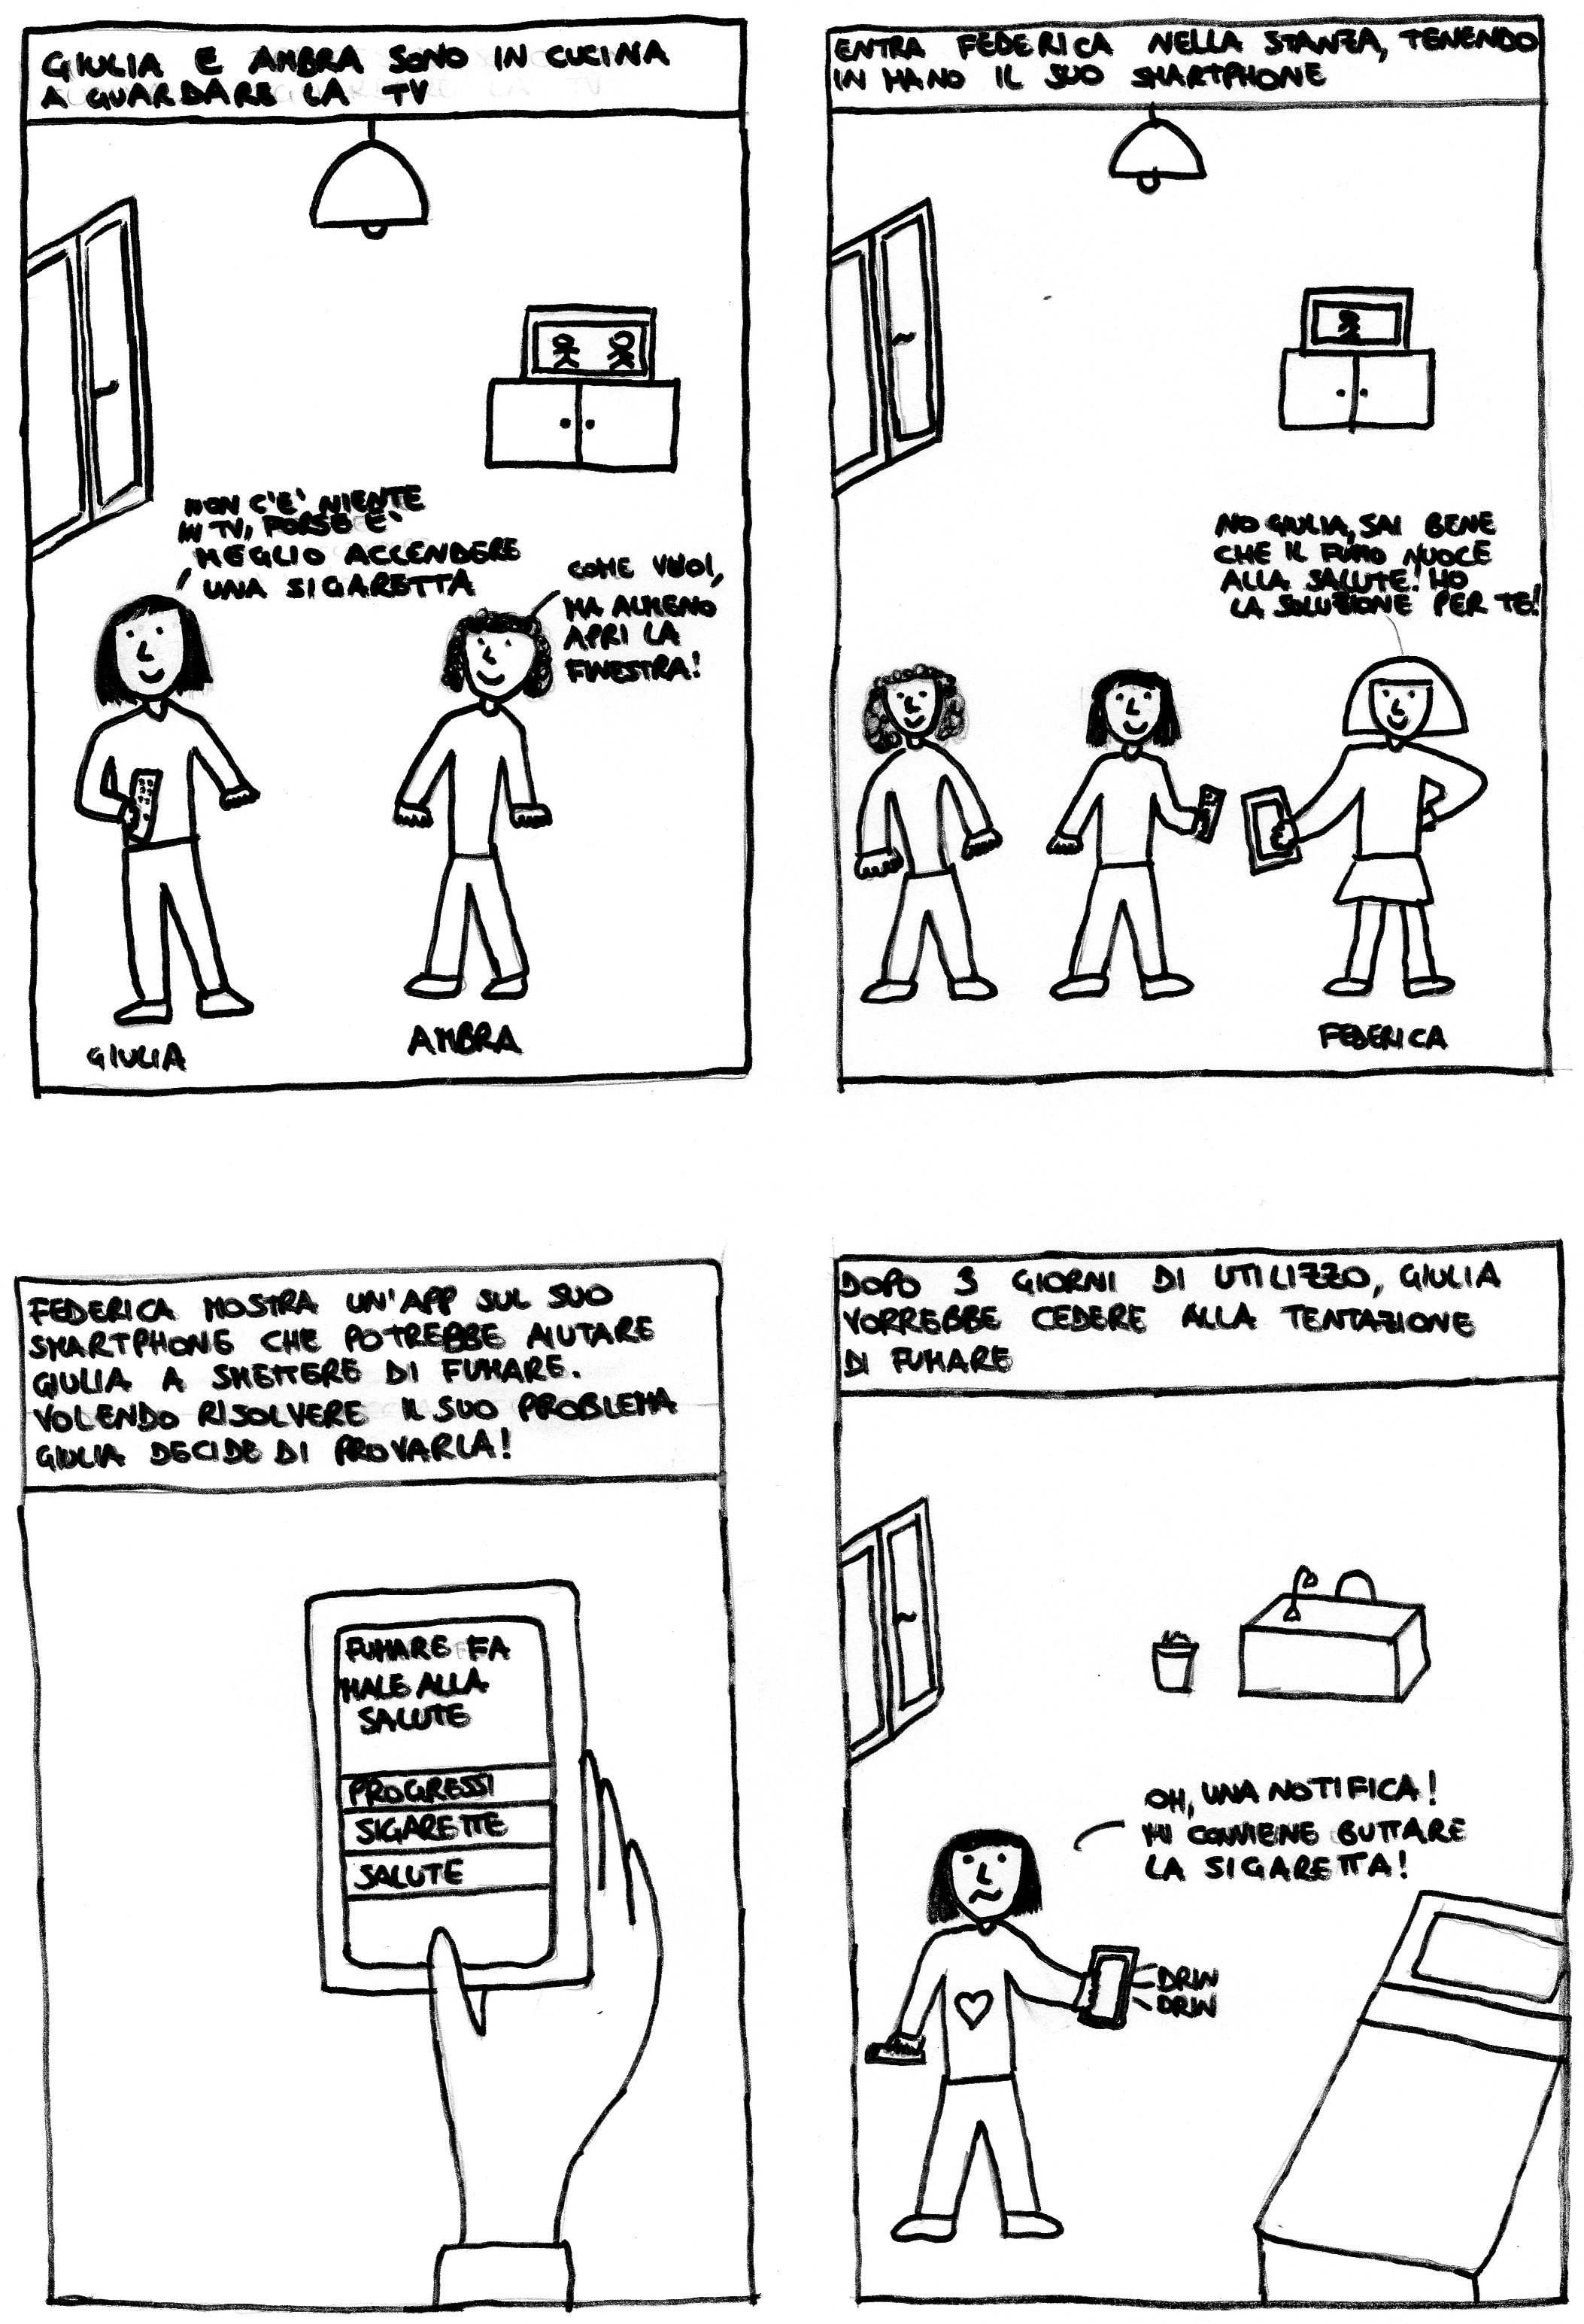 GIULIA E AMBRA SONO IN CUCINA
A GUARDARE LA TV
NON C'E' NIENTE
IN TV, FORSE E'
MEGLIO ACCENDERE
UNA SIGARETTA
COME VUOI,
MA ALMENO
APRI LA
FINESTRA!
GIULIA
AMBRA
ENTRA FEDERICA NELLA STANZA, TENENDO
IN MANO IL SUO SMARTPHONE
NO GIULIA, SAI BENE
CHE IL FUMO NUOCE
ALLA SALUTE! HO
LA SOLUZIONE PER TE!
FEDERICA
FEDERICA MOSTRA UN'APP SUL SUO
SMARTPHONE CHE POTREBBE AIUTARE
GIULIA A SMETTERE DI FUMARE.
VOLENDO RISOLVERE IL SUO PROBLEMA
GIULIA DECIDE DI PROVARLA!
FUMARE FA
MALE ALLA
SALUTE
PROGRESSI
SIGARETTE
SALUTE
DOPO 3 GIORNI DI UTILIZZO, GIULIA
VORREBBE CEDERE ALLA TENTAZIONE
DI FUMARE
OH, UNA NOTIFICA!
MI CONVIENE BUTTARE
LA SIGARETTA!
DRIN
DRIN